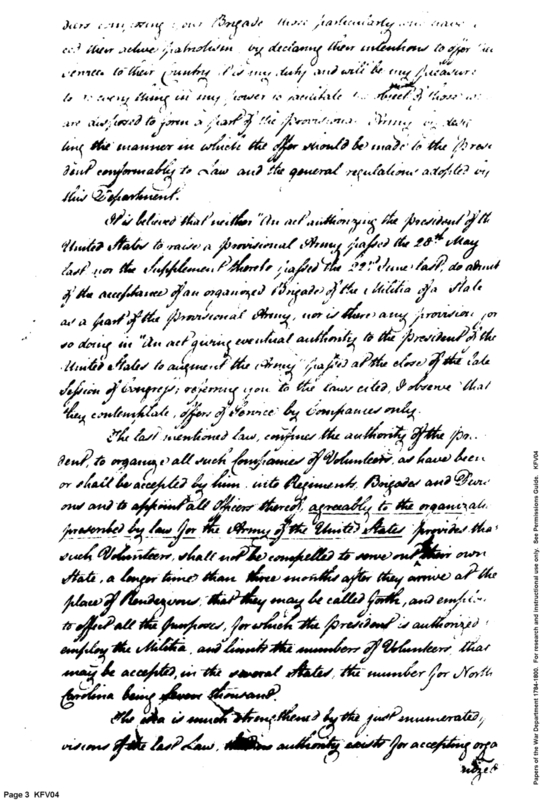 diers composing your Brigade more particularly who have
ced their active patriotism by declaring their intentions to offer
services to their Country it is my duty and will be my pleasure
to do every thing in my power to facilitate the object of those
are disposed to form a part of the Provisional Army by
ting the manner in which the offer should be made to the Presi
dent conformably to Law and the general regulations adopted by
this Department.
It is believed that neither "An act authorizing the president of the
United States to raise a provisional Army passed the 28th May
last nor the Supplement thereto passed the 22nd June last, do admit
of the acceptance of an organized Brigade of the Militia of a State
as a part of the Provisional Army, nor is there any provision for
so doing in "An act giving eventual authority to the President of the
United States to augment the Army" passed at the close of the late
Session of Congress; referring you to the laws cited, I observe that
they contemplate, offers of Service by Companies only.
The last mentioned law, confines the authority of the
dent, to organize all such Companies of Volunteers, as have been
or shall be accepted by him into Regiments, Brigades and Divi
ons and to appoint all officers thereof, agreeably to the organizati
prescribed by law for the Army of the United States provides that
such Volunteers, shall not be compelled to serve out their own
State, a longer time than three months after they arrive at the
place of Rendezvous, that they may be called forth, and
to effect all the purposes, for which the President is authorized
employ the Militia, and limits the numbers of Volunteers, that
may be accepted, in the several States, the number for North
Carolina being seven thousand.
The idea is much strengthened by the just enumerated,
visions of the last Law, authority exists for accepting orga
nized
Page 3 KFV04
Papers of the War Department 1784-1800. For research and instructional use only. See Permissions Guide. KFV04